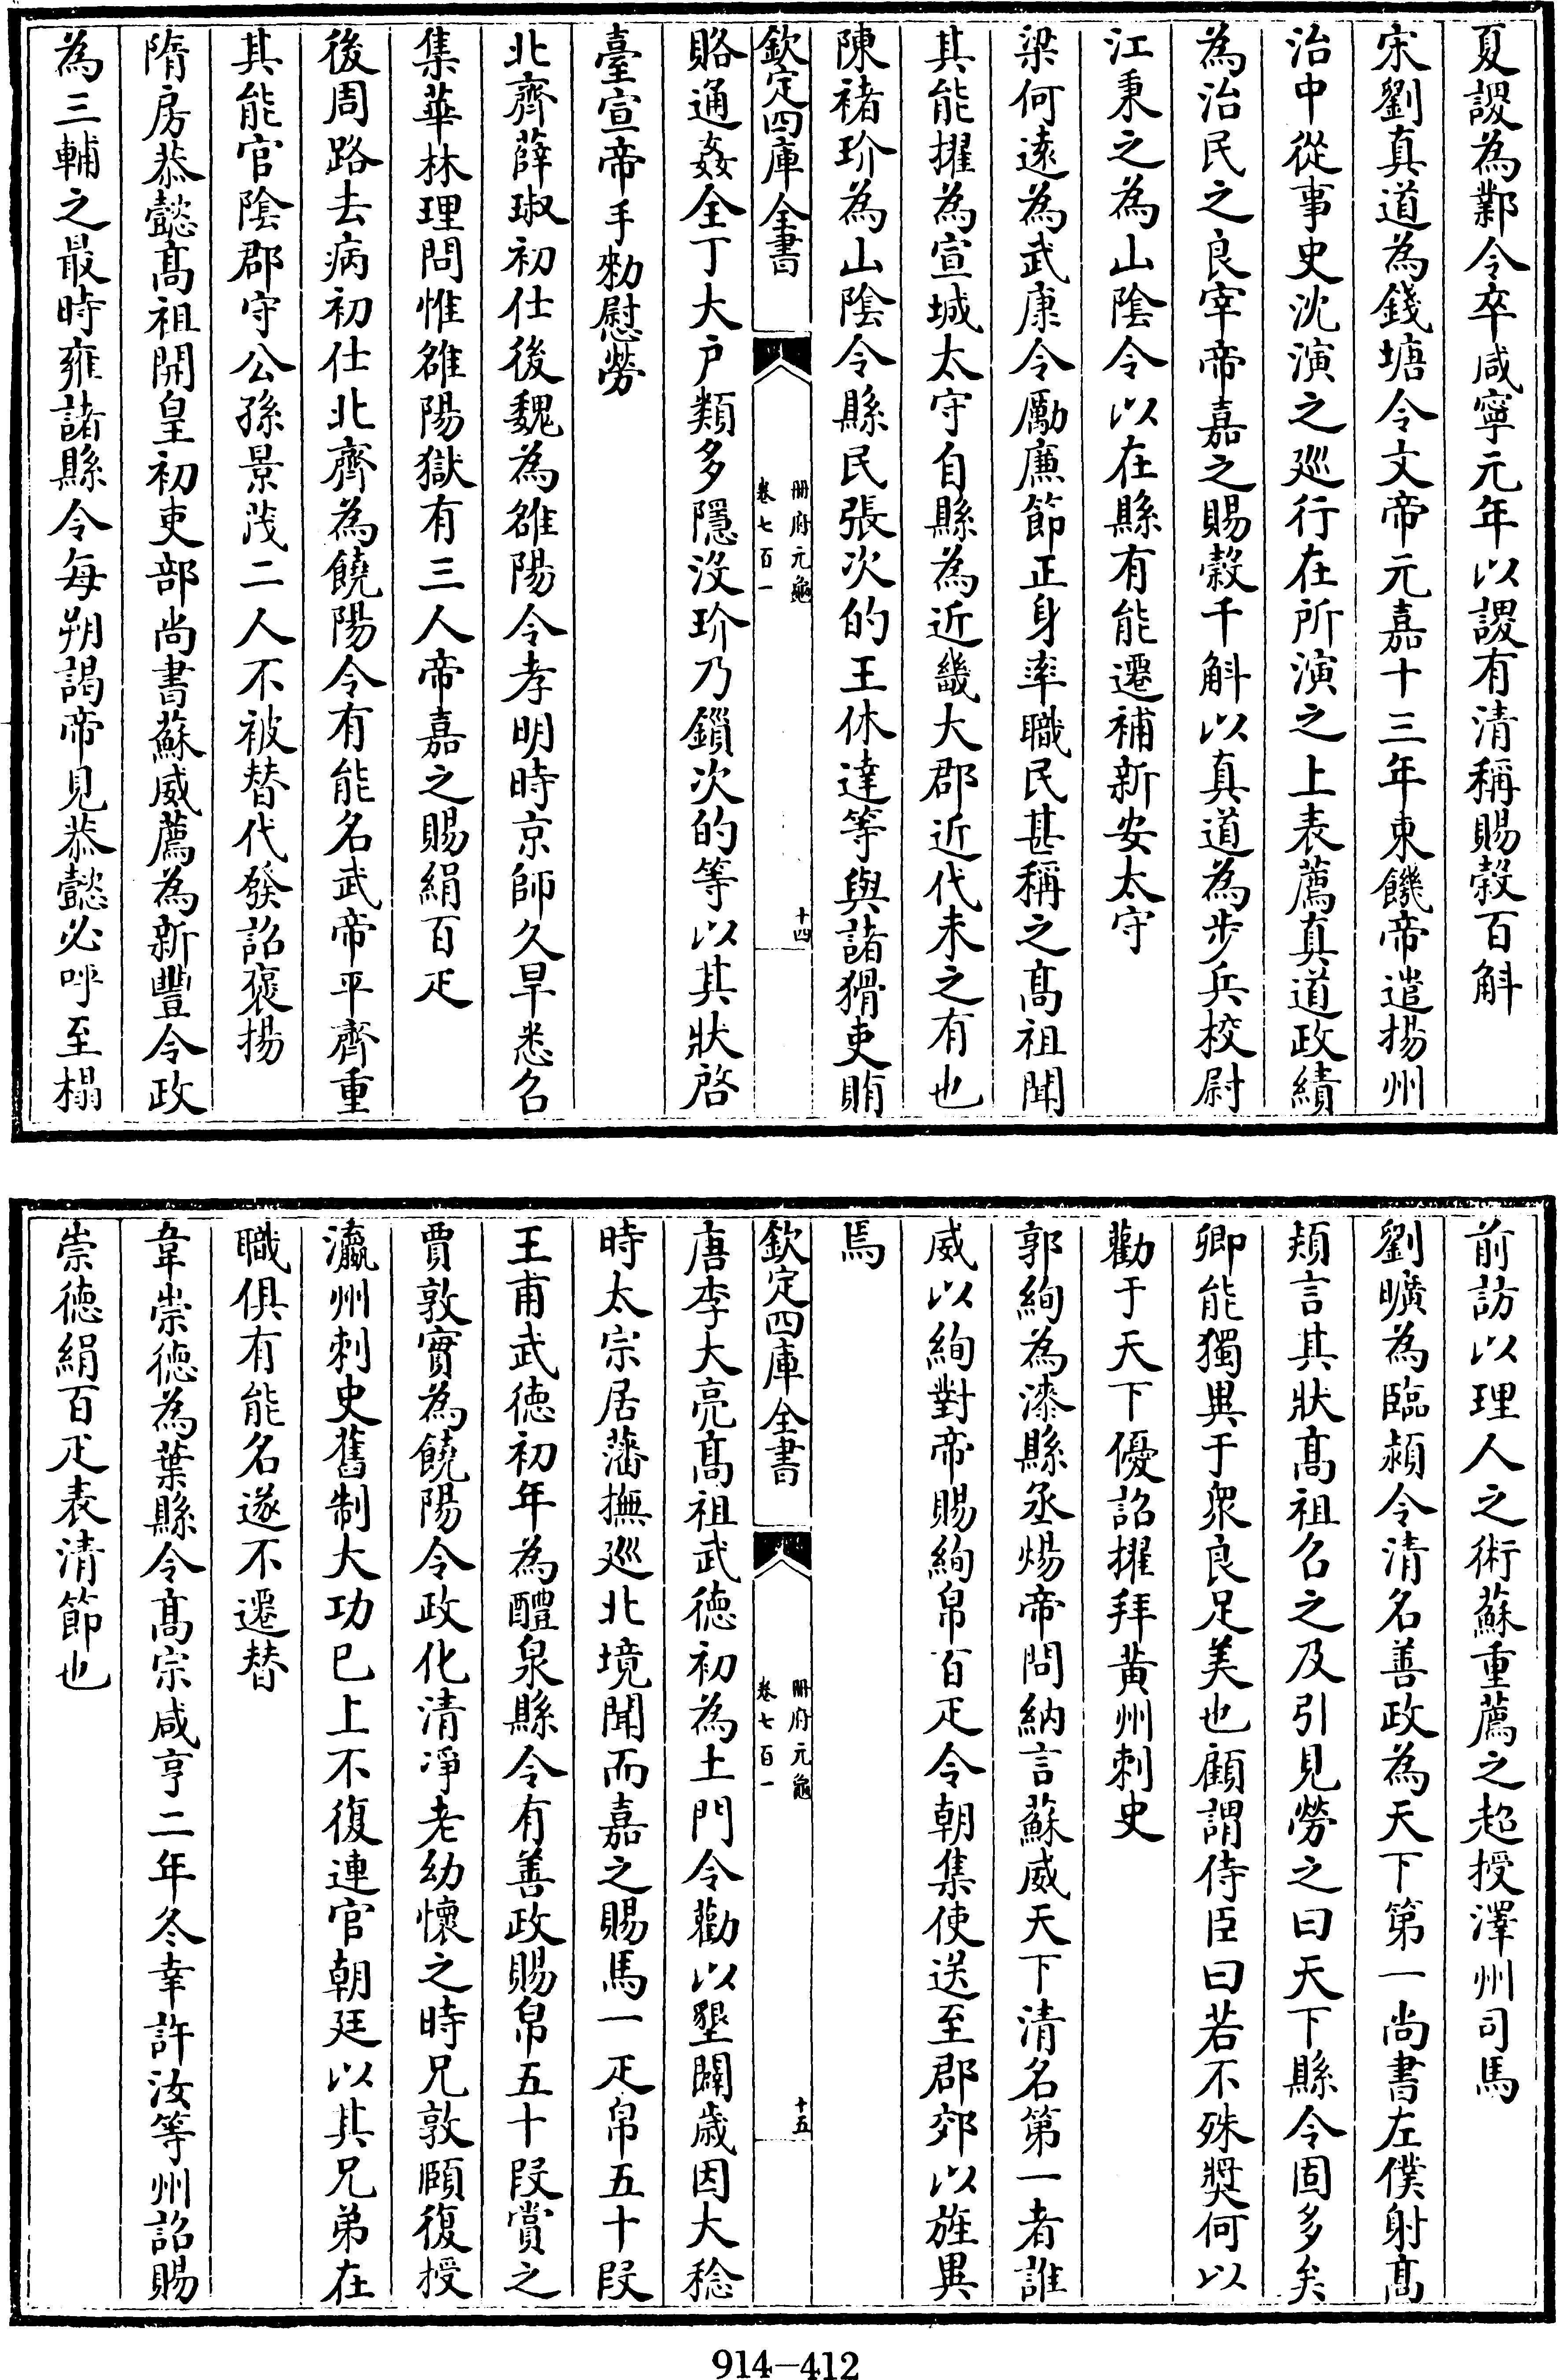 夏謖為鄴令卒咸寧元年以謖有清稱賜榖百斛
宋劉真道為錢塘令文帝元嘉十三年東饑帝遣揚州
治中從事史沈演之廵行在所演之上表薦真道政績
為治民之良宰帝嘉之賜榖千斛以真道為步兵校尉
江秉之為山隂令以在縣有能遷補新安太守
梁何逺為武康令勵亷節正身率職民甚稱之髙祖聞
其能擢為宣城太守自縣為近畿大郡近代未之有也
陳禇玠為山隂令縣民張次的王休達等與諸猾吏賄
欽定四庫全書
冊府元龜
卷七百一
十四
賂通姦全丁大戸類多隱沒玠乃鎻次的等以其狀啓
臺宣帝手勑慰勞
北齊薛琡初仕後魏為雒陽令孝明時京師久旱悉召
集華林理問惟雒陽獄有三人帝嘉之賜絹百疋
後周路去病初仕北齊為饒陽令有能名武帝平齊重
其能官隂郡守公孫景茂二人不被替代發詔褒揚
隋房恭懿髙祖開皇初吏部尚書蘇威薦為新豐令政
為三輔之最時雍諸縣令每朔謁帝見恭懿必呼至榻
前訪以理人之術蘇重薦之超授澤州司馬
劉曠為臨潁令清名善政為天下第一尚書左僕射髙
熲言其狀髙祖召之及引見勞之曰天下縣令固多矣
卿能獨異于衆良足美也顧謂侍臣曰若不殊奬何以
勸于天下優詔擢拜莒州刺史
郭絢為漆縣丞煬帝問納言蘇威天下清名第一者誰
威以絢對帝賜絢帛百疋令朝集使送至郡郊以旌異
焉
欽定四庫全書
冊府元龜
卷七百一
十五
唐李大亮髙祖武徳初為土門令勸以墾闢歳因大稔
時太宗居藩撫廵北境聞而嘉之賜馬一疋帛五十段
王甫武徳初年為醴泉縣令有善政賜帛五十段賞之
賈敦實為饒陽令政化清凈老幼懷之時兄敦頤復授
瀛州刺史舊制大功已上不復連官朝廷以其兄弟在
職俱有能名遂不遷替
韋崇徳為葉縣令髙宗咸亨二年冬幸許汝等州詔賜
崇徳絹百疋表清節也
914—412